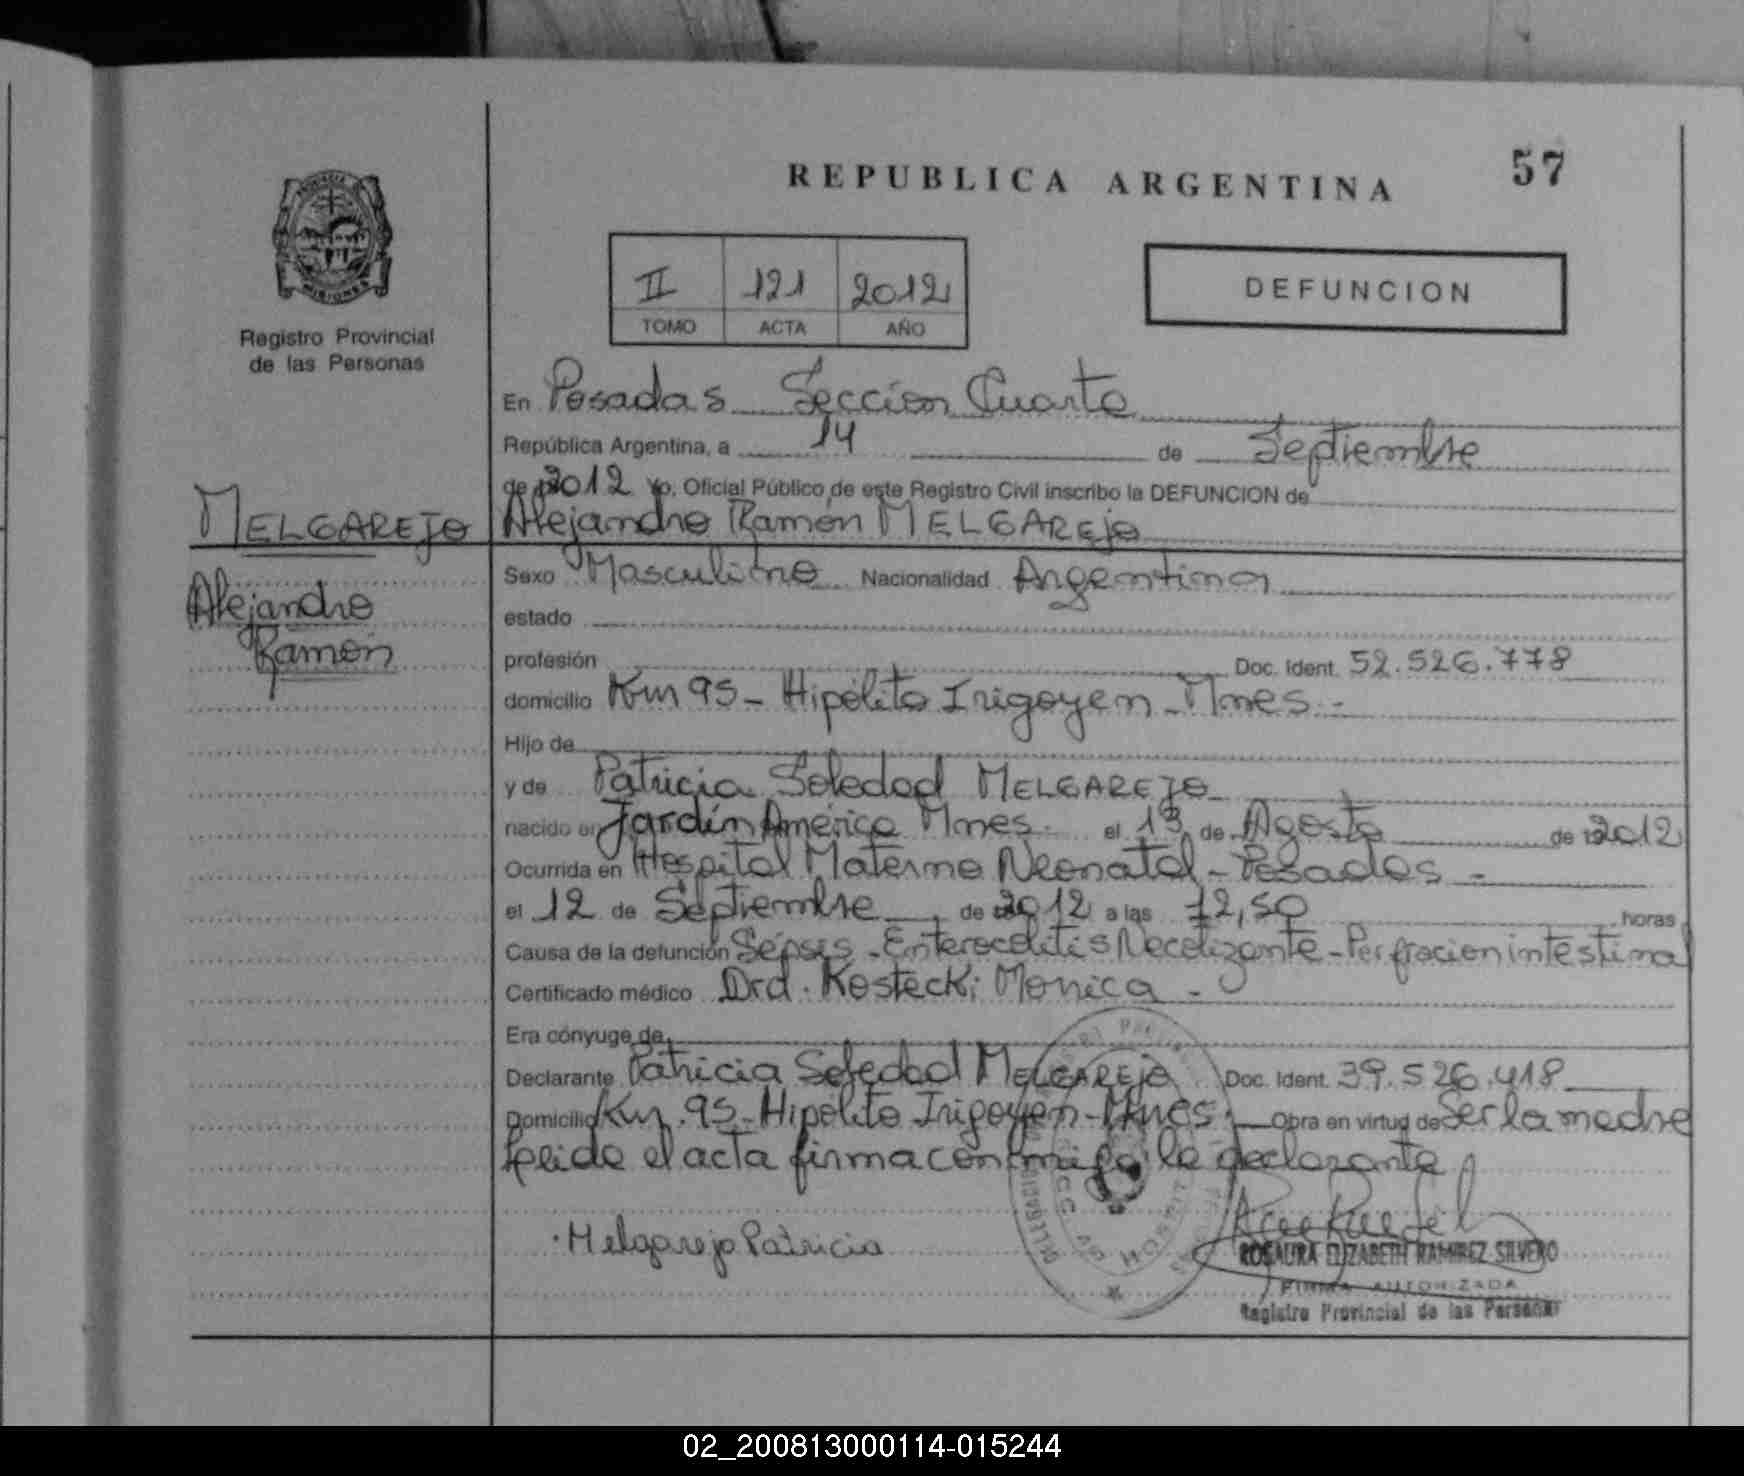 57
REPUBLICA ARGENTINA
PROVINCIA
MISIONES
Registro Provincial
de las Personas
II 121 2012
TOMO ACTA AÑO
DEFUNCION
En Posadas Sección Cuarta
República Argentina, a 14 de Septiembre
de 2012 Yo, Oficial Público de este Registro Civil inscribo la DEFUNCION de
MELGAREJO
Alejandro Ramón MELGAREJO
Alejandro
Ramón
Sexo Masculino Nacionalidad Argentina
estado
profesión Doc. Ident. 52.526.778
domicilio Km 95 - Hipólito Irigoyen - Mnes. -
Hijo de
y de Patricia Soledad MELGAREJO
nacido en Jardín América Mnes. el 13 de Agosto de 2012
Ocurrida en Hospital Materno Neonatal - Posadas -
el 12 de Septiembre de 2012 a las 12,50 horas
Causa de la defunción Sépsis - Enterocolitis Necotizante - Perfracion intestinal
Certificado médico Dra. Kostecki Monica -
Era cónyuge de
Declarante Patricia Soledad MELGAREJO Doc. Ident. 39.526.418
Domicilio Km. 95 - Hipólito Irigoyen - Mnes. Obra en virtud de Ser la madre
leida el acta firma conmigo la declarante
Melgarejo Patricia
ROSAURA ELIZABETH RAMIREZ SILVERO
FIRMA AUTORIZADA
Registro Provincial de las Personas
02_200813000114-015244